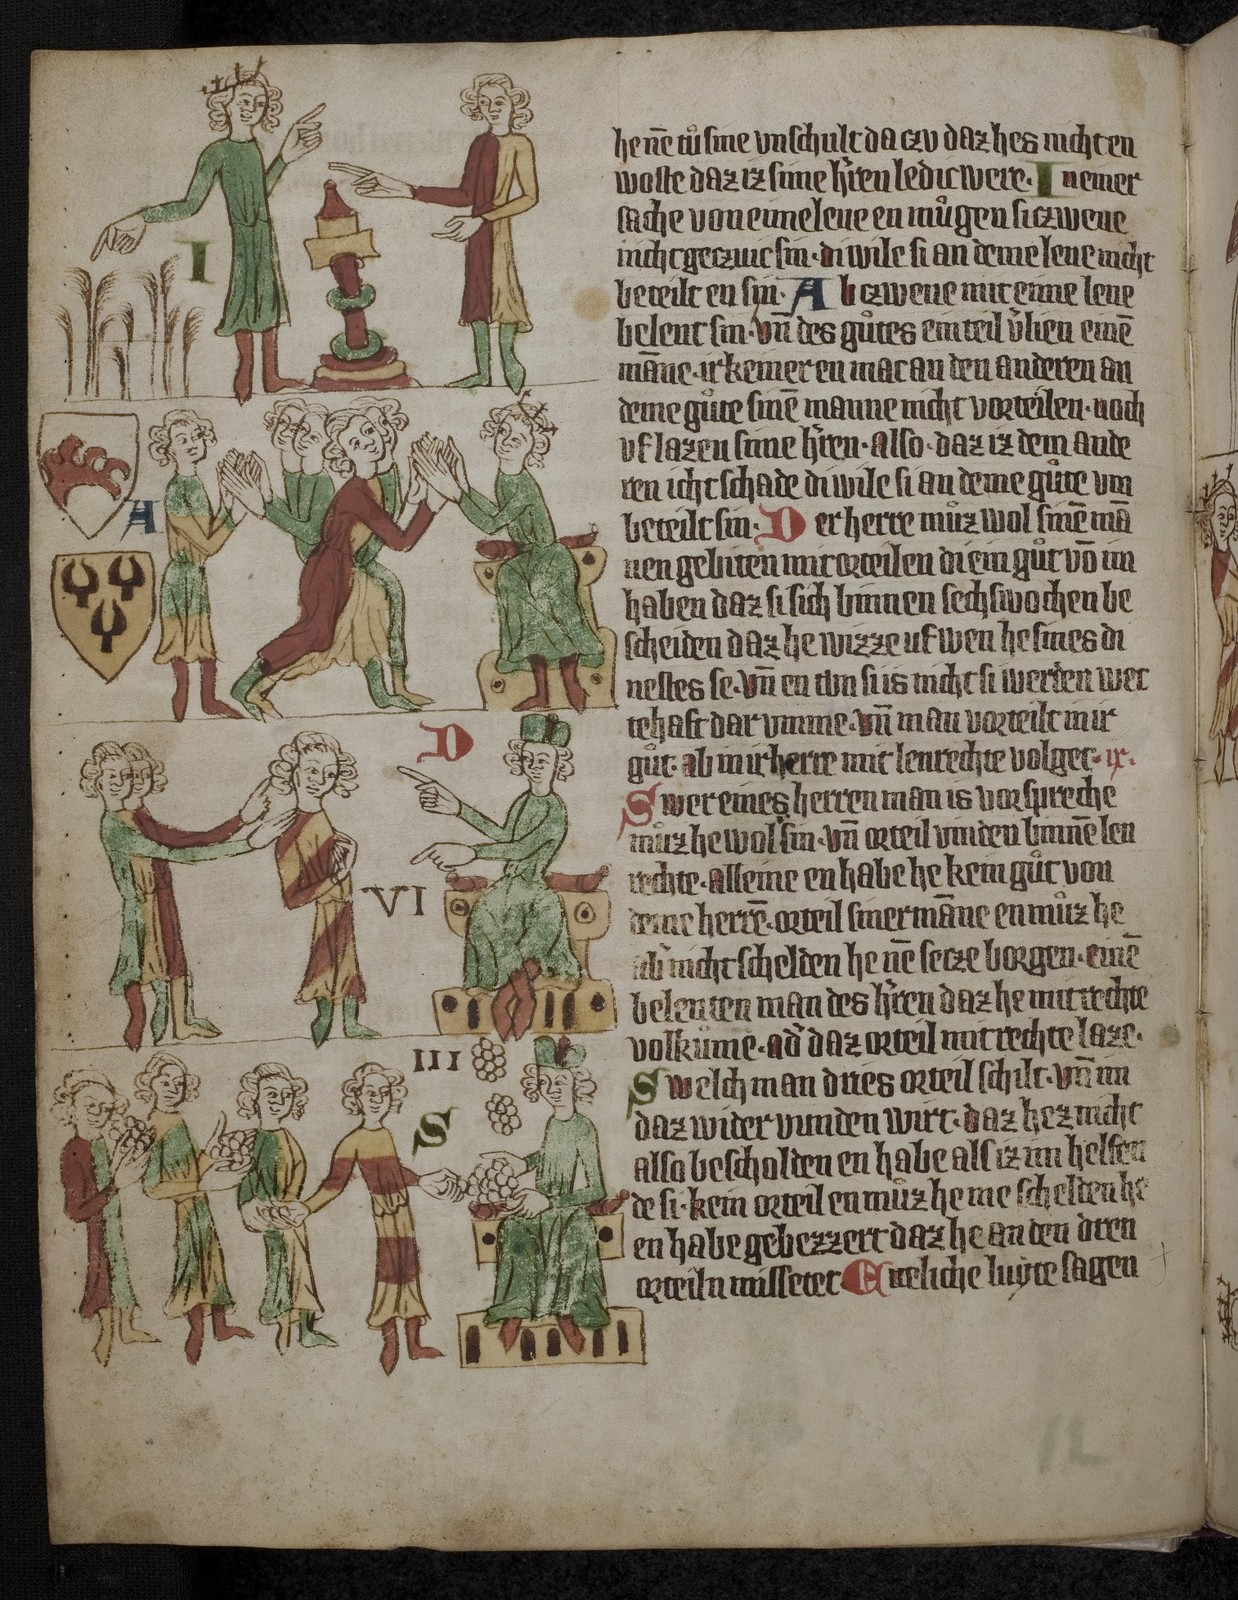 I
A
D
VI
III
S
he nē tů sine vnschult da czu daz hes nicht en
wolte daz iz sime h̓ren ledic were. I n einer
sache von eime lene en můgen si czwene
nicht geczuic sin. di wile si an deme lene nicht
beteilt en sin. A b czwene mit eime lene
belent sin. vn̄ des gůtes ein teil v̓lien einē
māne. ir keiner en mac an den anderen an
deme gůte sinē manne nicht vorteilen. noch
vf lazen sime h̓ren. also. daz iz dem ande
ren icht schade di wile si an deme gůte vm
beteilt sin. D er herre můz wol sinē mā
nen gebiten mit orteilen di ein gůt vō im
haben daz si sich binnen sechswochen be
scheiden daz he wizze uf wen he sines di
nestes se. vn̄ en tůn si is nicht si werden wet
tehaft dar vmme. vn̄ man vorteilt in ir
gůt. ab in ir herre mit lenrechte volget. ix.
S wer eines herren man is vorspreche
můz he wol sin. vn̄ orteil vinden binnē len
rechte. alleine en habe he kein gůt von
deme herrē. orteil siner māne en můz he
ab̓ nicht schelden he nē secze borgen. einē
belenten man des h̓ren daz he mit rechte
volkůme. ad̓ daz orteil mit rechte laze.
S welch man dries orteil schilt. vn̄ im
daz wider vunden wirt. daz hez nicht
also bescholden en habe als iz im helfen
de si. kein orteil en můz he me schelden he
en habe gebezzert daz he an den dren
orteiln missetet. E teliche luyte sagen